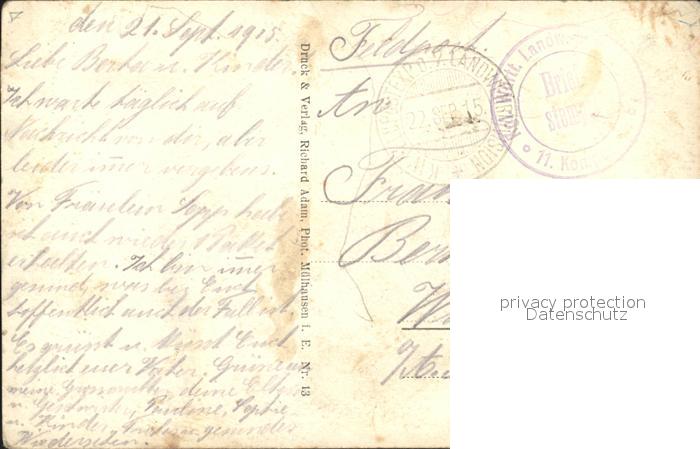 den 21. Sept. 1915.
Liebe Berta u. Kinder.
Ich warte täglich auf
Nachricht von dir, aber
leider immer vergebens.
Von Fräulein Sopp habe
ich auch wieder 1 Paket
erhalten. Ich bin immer
gesund, was bei Euch
hoffentlich auch der Fall ist.
Es grüsst u. küsst Euch
herzlich euer Vater. Grüsse
meine Grossmutter, deine Eltern
u. Geschwister, Pauline, Sophie
u. Kinder.
Wiedersehen.
Druck & Verlag, Richard Adam, Phot. Mülhausen i. E. Nr. 13
Feldpost.
An
Frau
22.SEP.15
Landw.
Brief
stem
11. Kom
privacy protection
Datenschutz